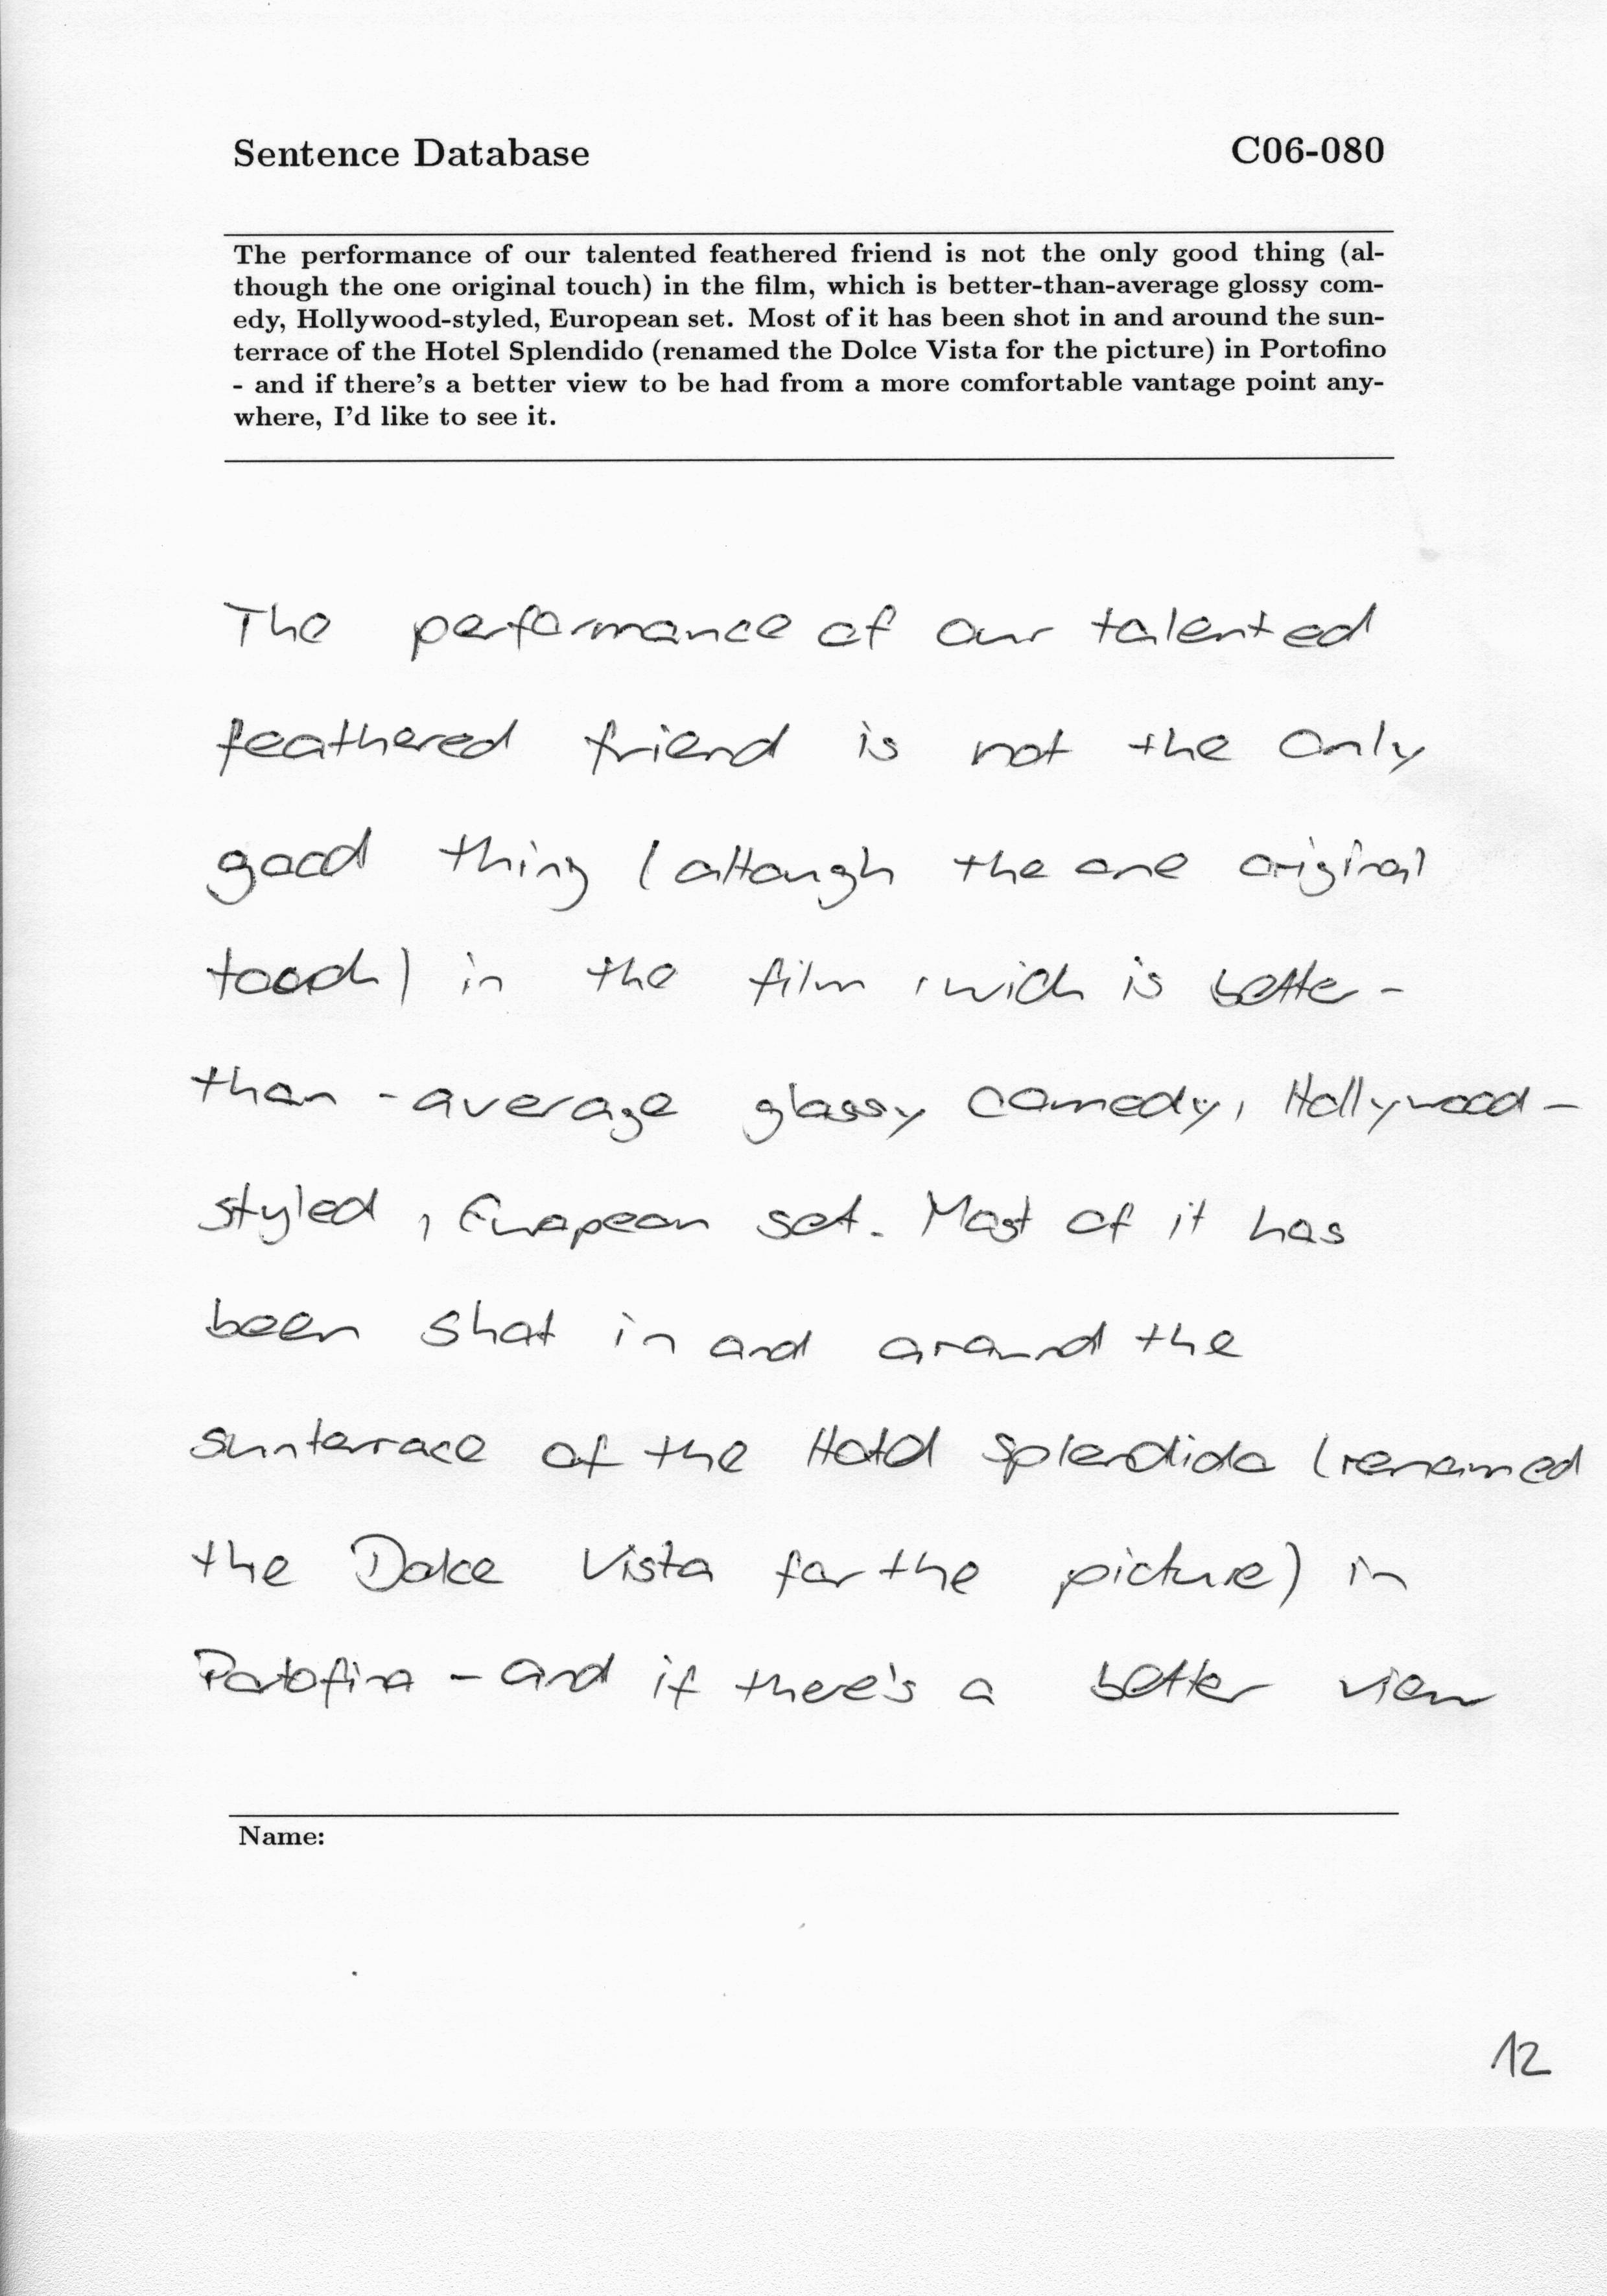 Sentence Database C06-080
The performance of our talented feathered friend is not the only good thing (al-
though the one original touch) in the film, which is better-than-average glossy com-
edy, Hollywood-styled, European set. Most of it has been shot in and around the sun-
terrace of the Hotel Splendido (renamed the Dolce Vista for the picture) in Portofino
- and if there's a better view to be had from a more comfortable vantage point any-
where, I'd like to see it.
The performance of our talented
feathered friend is not the only
good thing (altough the one original
touch) in the film, wich is better-
than-average glossy comedy, Hollywood-
styled, European set. Most of it has
been shot in and around the
sunterrace of the Hotel Splendido (renamed
the Dolce Vista for the picture) in
Portofino - and if there's a better view
Name:
12